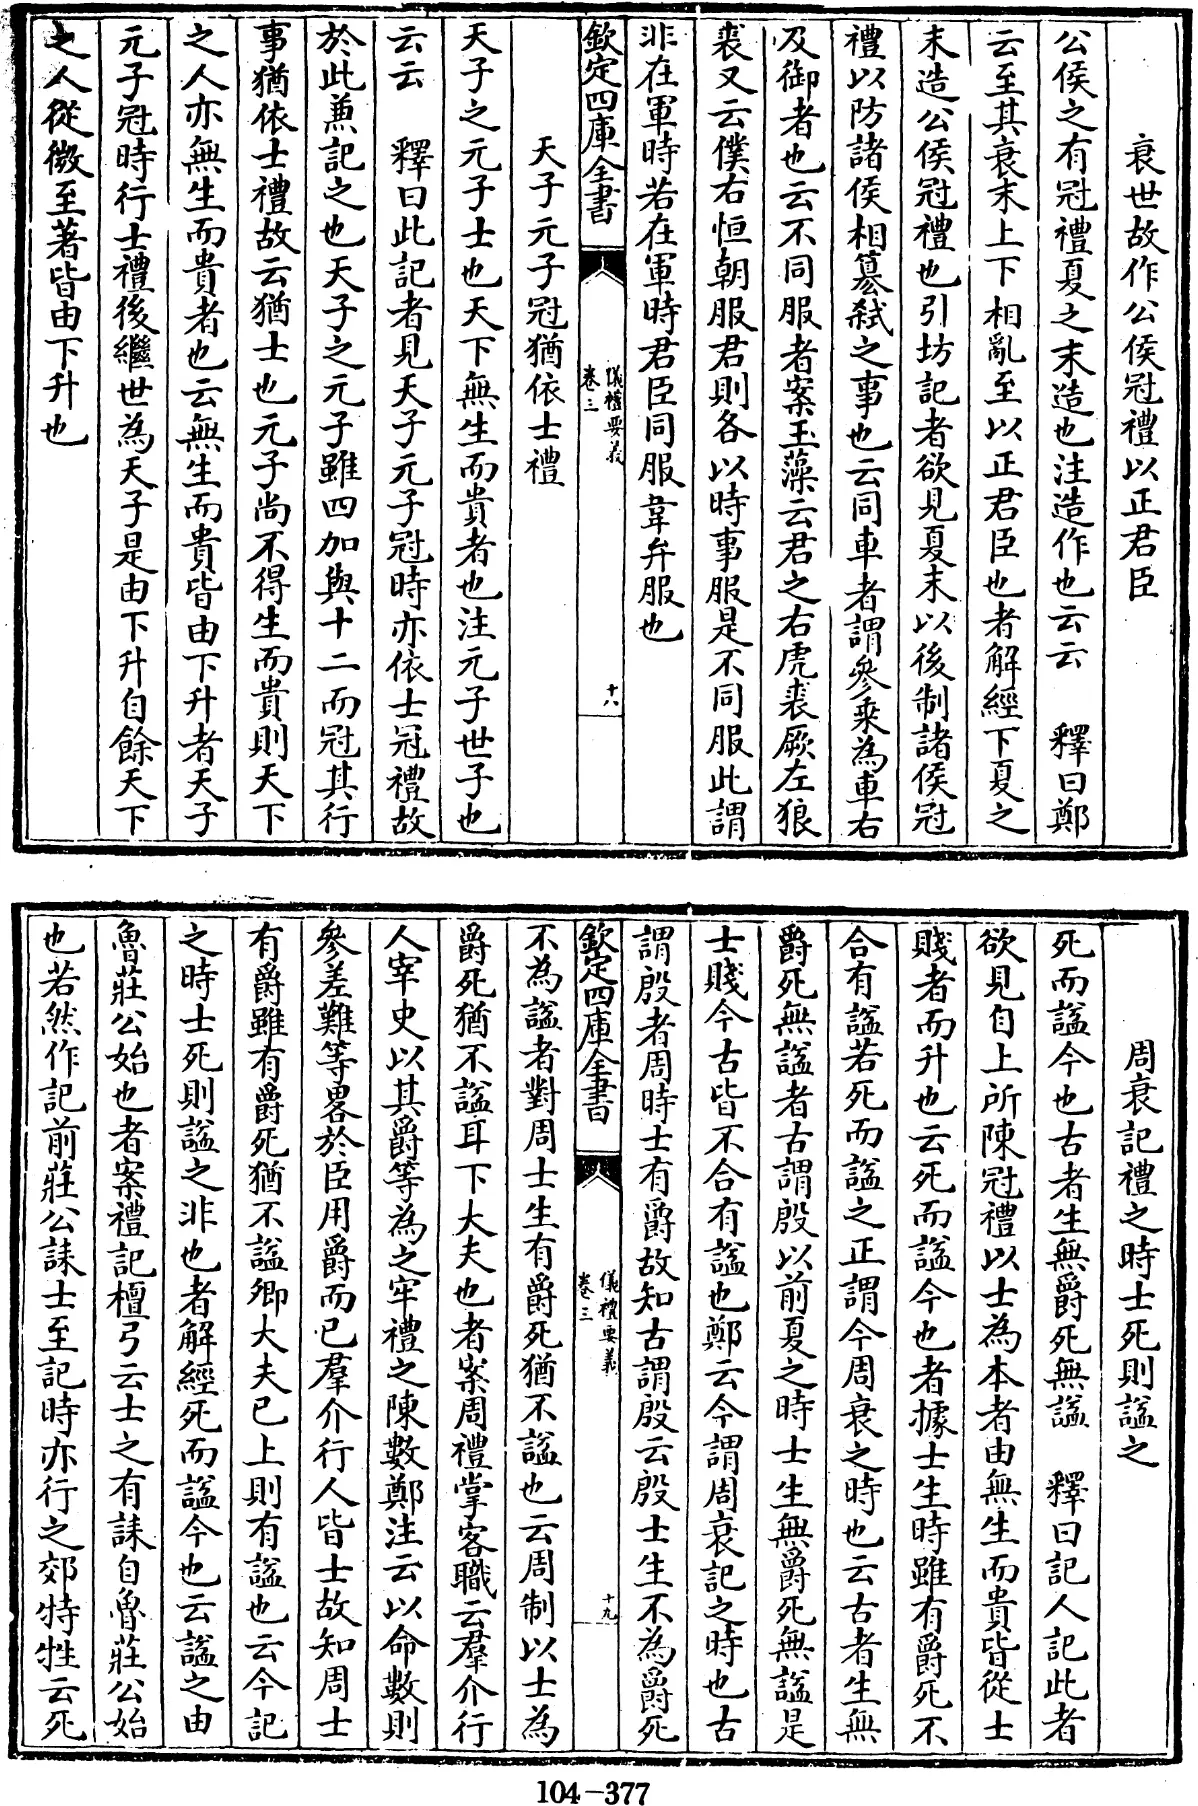 衰世故作公侯冠禮以正君臣
公侯之有冠禮夏之末造也注造作也云云　釋曰鄭
云至其衰末上下相亂至以正君臣也者解經下夏之
末造公侯冠禮也引坊記者欲見夏末以後制諸侯冠
禮以防諸侯相簒弑之事也云同車者謂參乗為車右
及御者也云不同服者案玉藻云君之右虎裘厥左狼
裘又云僕右恒朝服君則各以時事服是不同服此謂
非在軍時若在軍時君臣同服韋弁服也
欽定四庫全書
儀禮要義
卷三
十八
天子元子冠猶依士禮
天子之元子士也天下無生而貴者也注元子世子也
云云　釋曰此記者見天子元子冠時亦依士冠禮故
於此兼記之也天子之元子雖四加與十二而冠其行
事猶依士禮故云猶士也元子尚不得生而貴則天下
之人亦無生而貴者也云無生而貴皆由下升者天子
元子冠時行士禮後繼世為天子是由下升自餘天下
之人從微至著皆由下升也
周衰記禮之時士死則諡之
死而諡今也古者生無爵死無諡　釋曰記人記此者
欲見自上所陳冠禮以士為本者由無生而貴皆從士
賤者而升也云死而諡今也者據士生時雖有爵死不
合有諡若死而諡之正謂今周衰之時也云古者生無
爵死無諡者古謂殷以前夏之時士生無爵死無諡是
士賤今古皆不合有諡也鄭云今謂周衰記之時也古
謂殷者周時士有爵故知古謂殷云殷士生不為爵死
欽定四庫全書
儀禮要義
卷三
十九
不為諡者對周士生有爵死猶不諡也云周制以士為
爵死猶不諡耳下大夫也者案周禮掌客職云羣介行
人宰史以其爵等為之牢禮之陳數鄭注云以命數則
參差難等畧於臣用爵而已羣介行人皆士故知周士
有爵雖有爵死猶不諡卿大夫已上則有諡也云今記
之時士死則諡之非也者解經死而諡今也云諡之由
魯莊公始也者案禮記檀弓云士之有誄自魯莊公始
也若然作記前莊公誄士至記時亦行之郊特牲云死
104-377